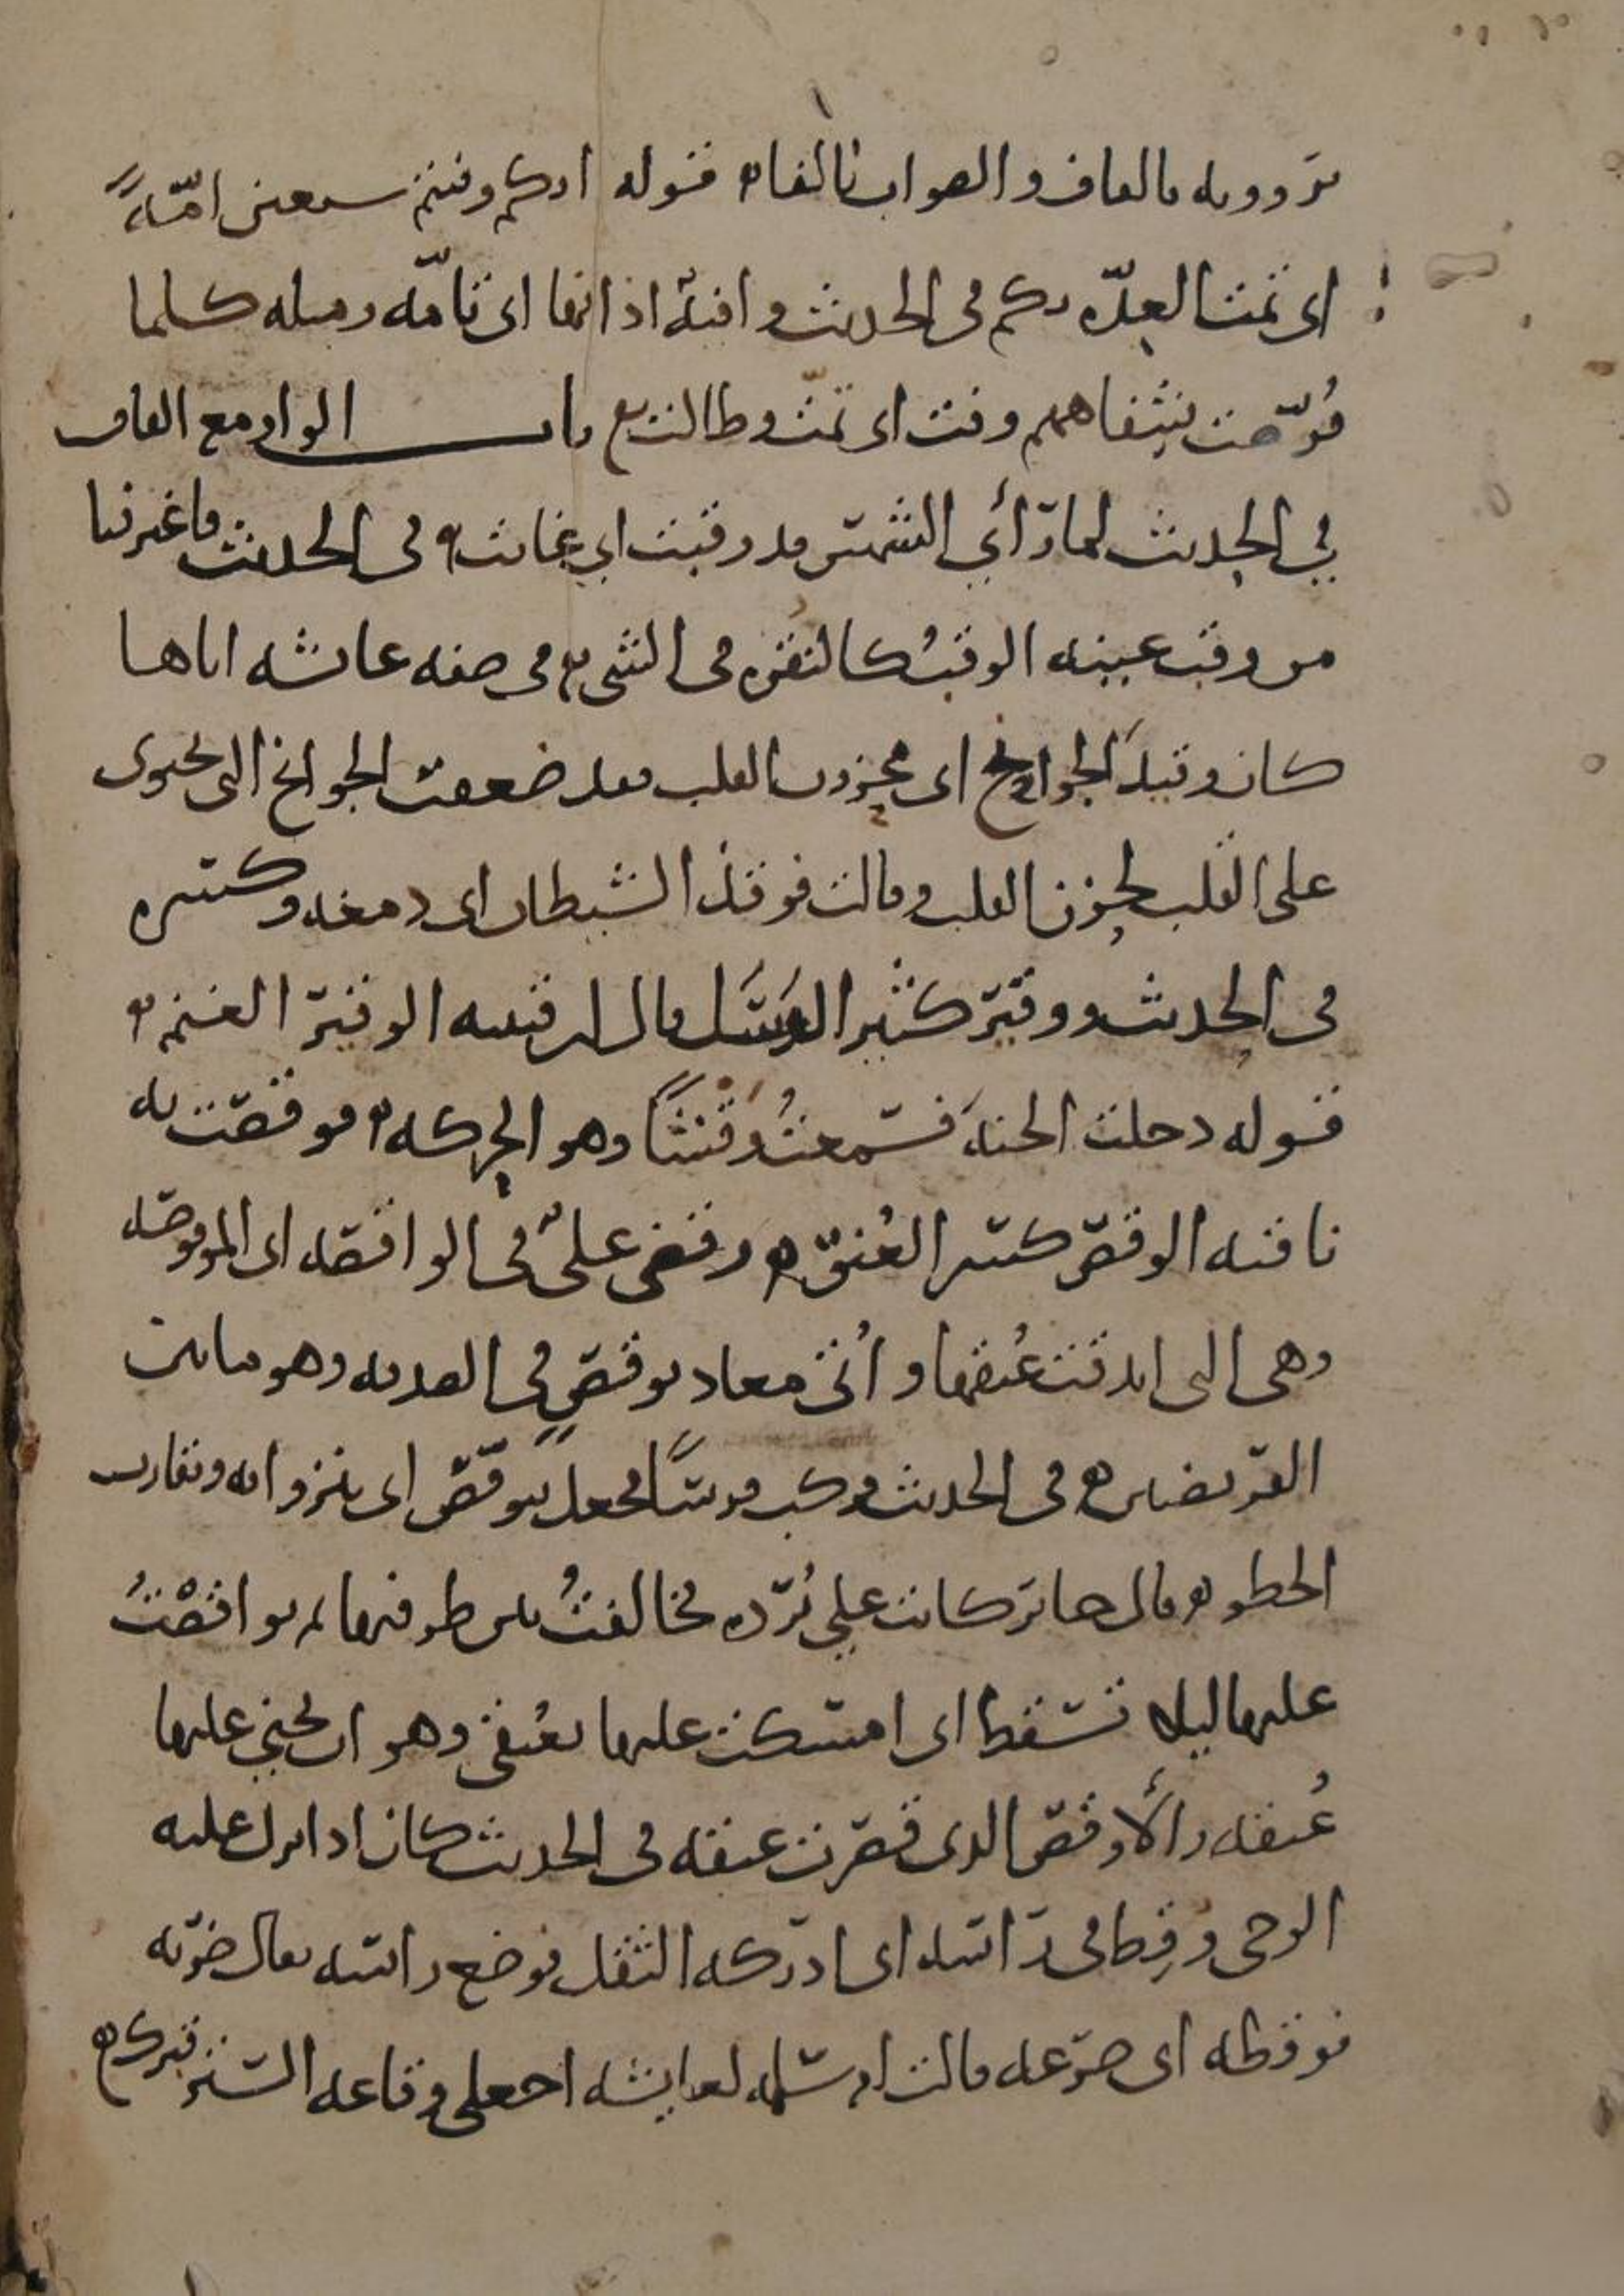 يروونه بالقاف والصواب بالفاء قوله انكم وفيتم سبعين امّةً
اى تمت العدّة بكم فى الحديث وافية اذانها اى تامّة ومثله كلما
قُرّضت شفاههم وفت اى تمت وطالت باب الواو مع القاف
في الحديث لما رأي الشمس قد وقبت اي غابت فى الحديث فاغترفنا
من وقب عينه الوقبُ كالنقرة فى الشىء فى صفة عائشة اباها
كان وقيذَ الجوانح اى محزون القلب فقد ضعفت الجوانح التى تحوى
على القلب لحزن القلب وقالت فوقذ الشيطان اى دمغه وكسره
فى الحديث ووقير كثير الرَسَل قال ابن قتيبه الوقير الغنم
قوله دخلت الجنة فسمعتُ وَقشًا وهو الحركة فوقصت به
ناقته الوقص كسر العُنق وقضى علىٌّ فى الواقصة اى الموقوصه
وهى التى اندقت عُنقها واُتى معاذ بوقصٍ فى الصدقه وهو ما بين
الفريضتين فى الحديث فركب فرسًا فجعل يتوقّص اى ينزوا به ويقارب
الخطو قال جابر كانت علي بُردة فخالفتُ بين طرفيها ثم تواقصْتُ
عليها ليلا تسقط اى امسكت عليها بعُنقى وهو ان يحني عليها
عُنقه والأوقص الذى قصرت عنقه فى الحديث كان اذا نزل عليه
الوحى وُقِط فى رأسه اى ادركه الثقل فوضع رأسه يقال ضربه
فوقطه اى صرعه قالت ام سلمه لعايشه اجعلى وقاعه الستر قبرك